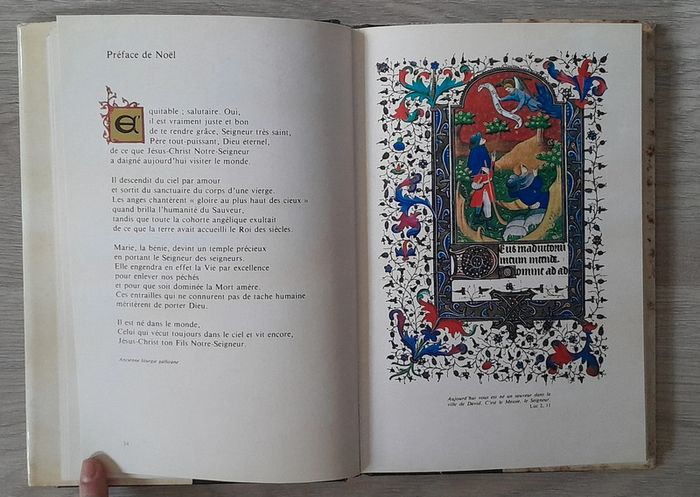 Préface de Noël
Equitable ; salutaire. Oui,
il est vraiment juste et bon
de te rendre grâce, Seigneur très saint,
Père tout-puissant, Dieu éternel,
de ce que Jésus-Christ Notre-Seigneur
a daigné aujourd'hui visiter le monde.
Il descendit du ciel par amour
et sortit du sanctuaire du corps d'une vierge.
Les anges chantèrent « gloire au plus haut des cieux »
quand brilla l'humanité du Sauveur,
tandis que toute la cohorte angélique exultait
de ce que la terre avait accueilli le Roi des siècles.
Marie, la bénie, devint un temple précieux
en portant le Seigneur des seigneurs.
Elle engendra en effet la Vie par excellence
pour enlever nos péchés
et pour que soit dominée la Mort amère.
Ces entrailles qui ne connurent pas de tache humaine
méritèrent de porter Dieu.
Il est né dans le monde,
Celui qui vécut toujours dans le ciel et vit encore,
Jésus-Christ ton Fils Notre-Seigneur.
Ancienne liturgie gallicane
54
Deus in adiutoriu
meum intende.
Domine ad ad
Aujourd'hui vous est né un sauveur dans la
ville de David. C'est le Messie, le Seigneur.
Luc 2, 11